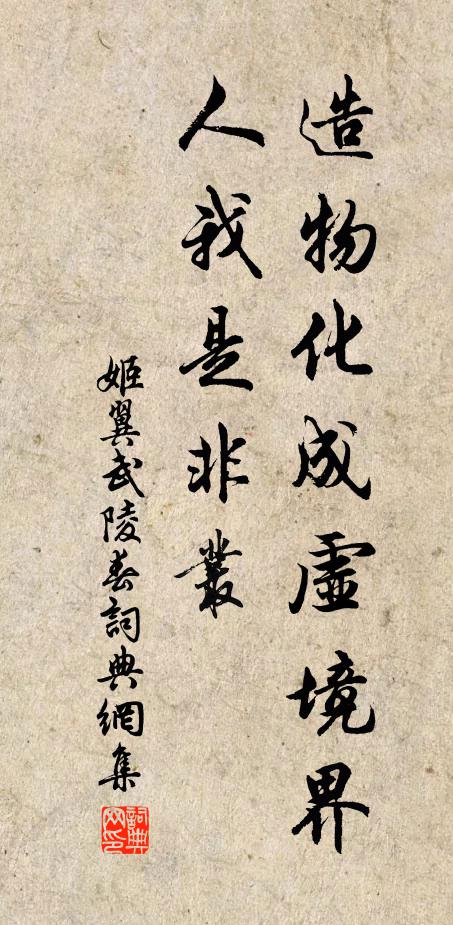 造物化成虛境界
人我是非叢
姬翼武陵春詞典網集
詞典网印